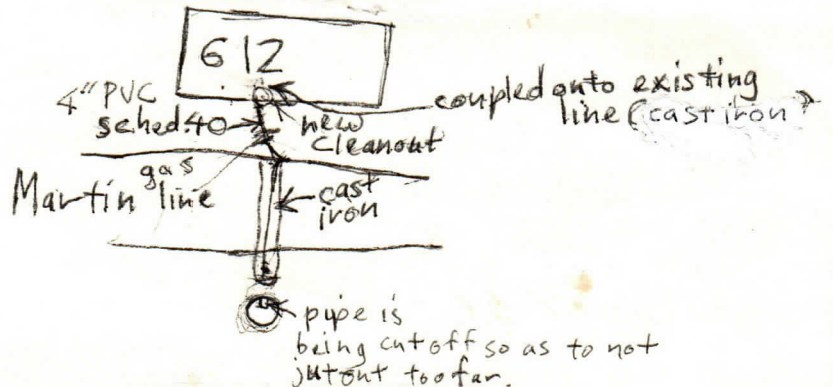 612
4" PVC
sched.40
new
cleanout
coupled onto existing
line (cast iron)
gas
line
Martin
cast
iron
pipe is
being cut off so as to not
jut out too far.